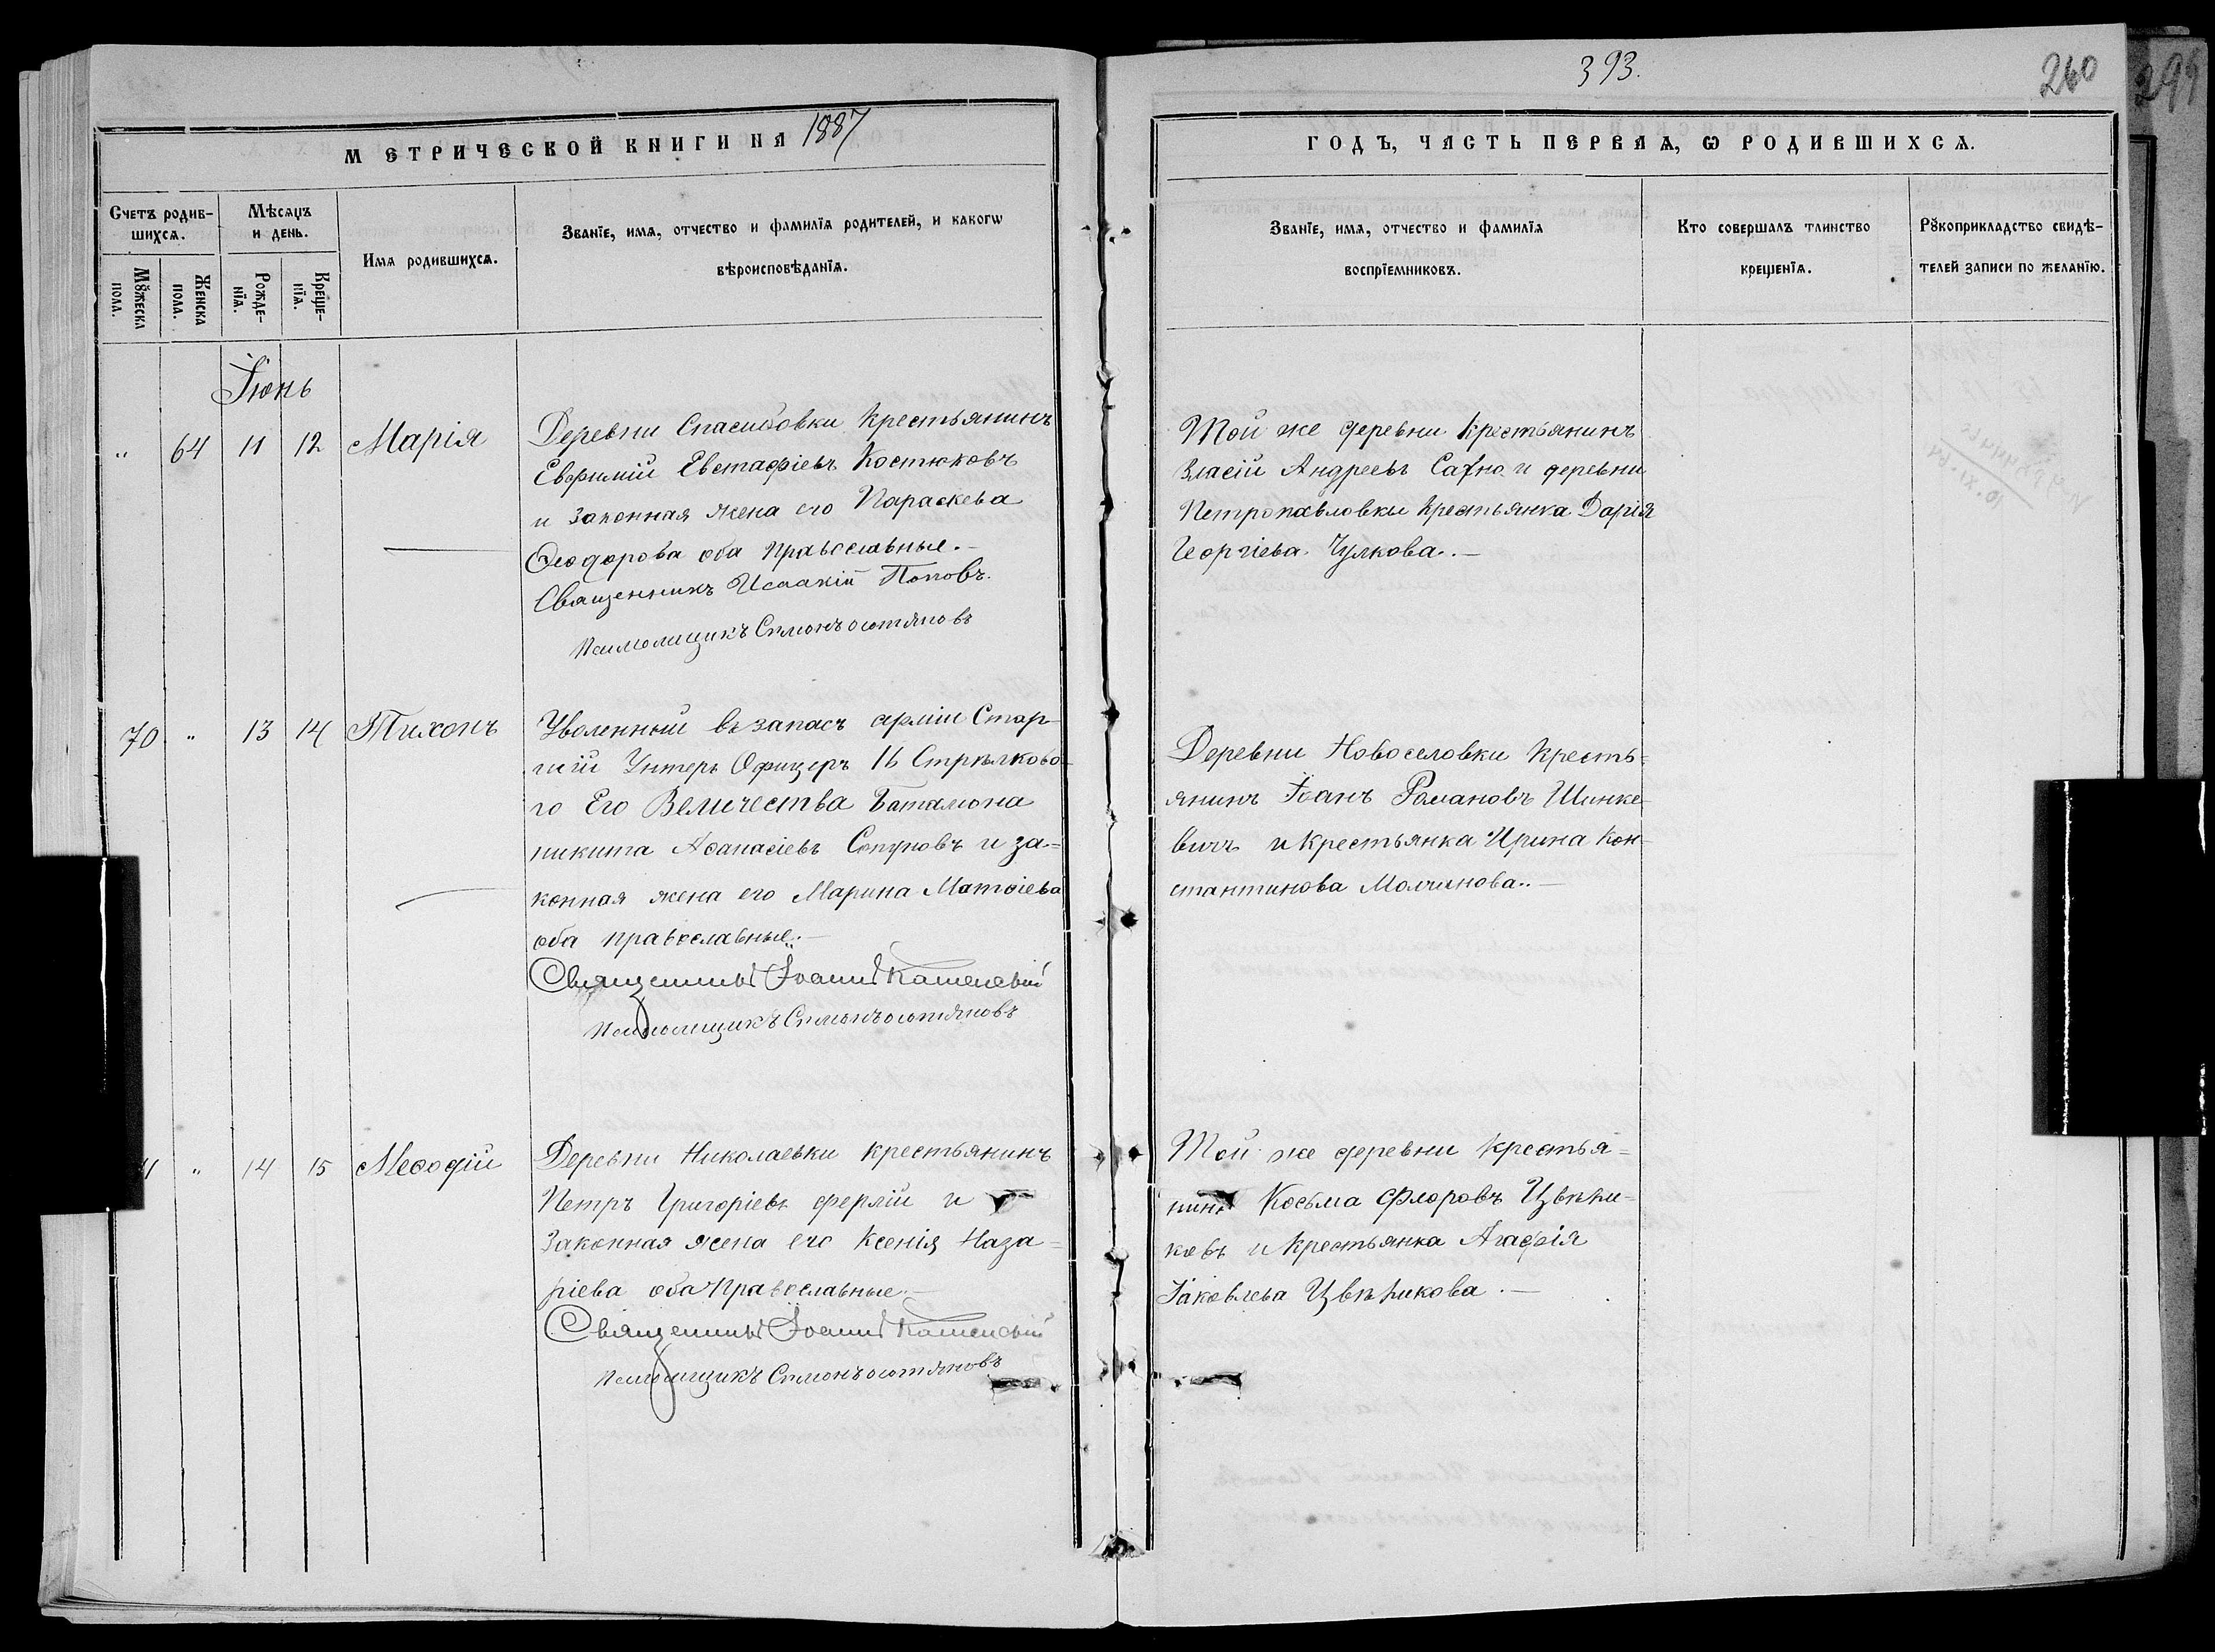 393.
260
299
МЕТРИЧЕСКОЙ КНИГИ НА 1887
ГОДЪ, ЧАСТЬ ПЕРВАЯ, Ѡ РОДИВШИХСѦ.
Счетъ родив-
шихсѧ.
Мѣсяцъ
и день.
Имѧ родившихсѧ.
Званїе, имѧ, отчество и фамилїѧ родителей, и какогѡ
вѣроисповѣданїѧ.
Мꙋжеска
пола.
Женска
пола.
Рожде-
нїѧ.
Креще-
нїѧ.
Званїе, имѧ, отчество и фамилїѧ
воспрїемниковъ.
Кто совершалъ таинство
крещенїѧ.
Рꙋкоприкладство свидѣ-
телей записи по желанїю.
Іюнь
" 64 11 12 Марія
Деревни Спасибовки Крестьянинъ
Евфимій Евстафіевъ Костюковъ
и Законная жена его Параскева
Ѳеодорова оба Православные.-
Священникъ Исаакій Поповъ.
Псаломщикъ
Той же деревни Крестьянинъ
Власій Андреевъ Сахно и деревни
Петропавловки Крестьянка Дарія
Георгіева Чулкова.-
70 " 13 14 Тихонъ
Уволенный въ запасъ арміи Стар-
шій Унтеръ Офицеръ 16 Стрѣлково-
го Его Величества Баталіона
никита Аѳанасіевъ Сопуновъ и за-=
конная жена его Марина Матѳіева
оба православные.-
Священникъ Іоаннъ Каменскій
Псаломщикъ
Деревни Новоселовки Кресть=
янинъ Іоанъ Романовъ Шинке-
вичъ и Крестьянка Ирина Кон-
стантинова Молчанова..-
" 14 15 Меѳодій
Деревни Николаевки крестьянинъ
Петръ Григоріевъ и
Законная жена его Ксенія Наза=
ріева оба Православные.-
Священникъ Іоаннъ Каменскій
Псаломщикъ
Той же деревни Крестья=
нинъ Косьма Флоровъ
ковъ и Крестьянка Агафія
Іаковлева